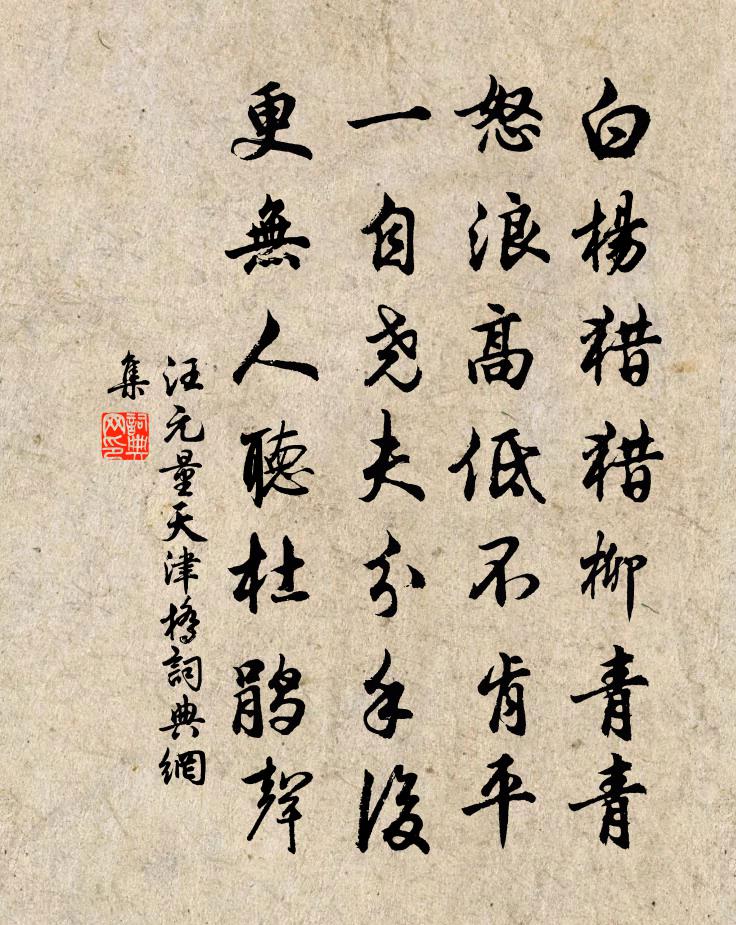 白楊猎猎柳青青
怒浪高低不肯平
一自尧夫分手後
更無人聽杜鹃聲
汪元量天津橋詞典網
集
詞典
网印